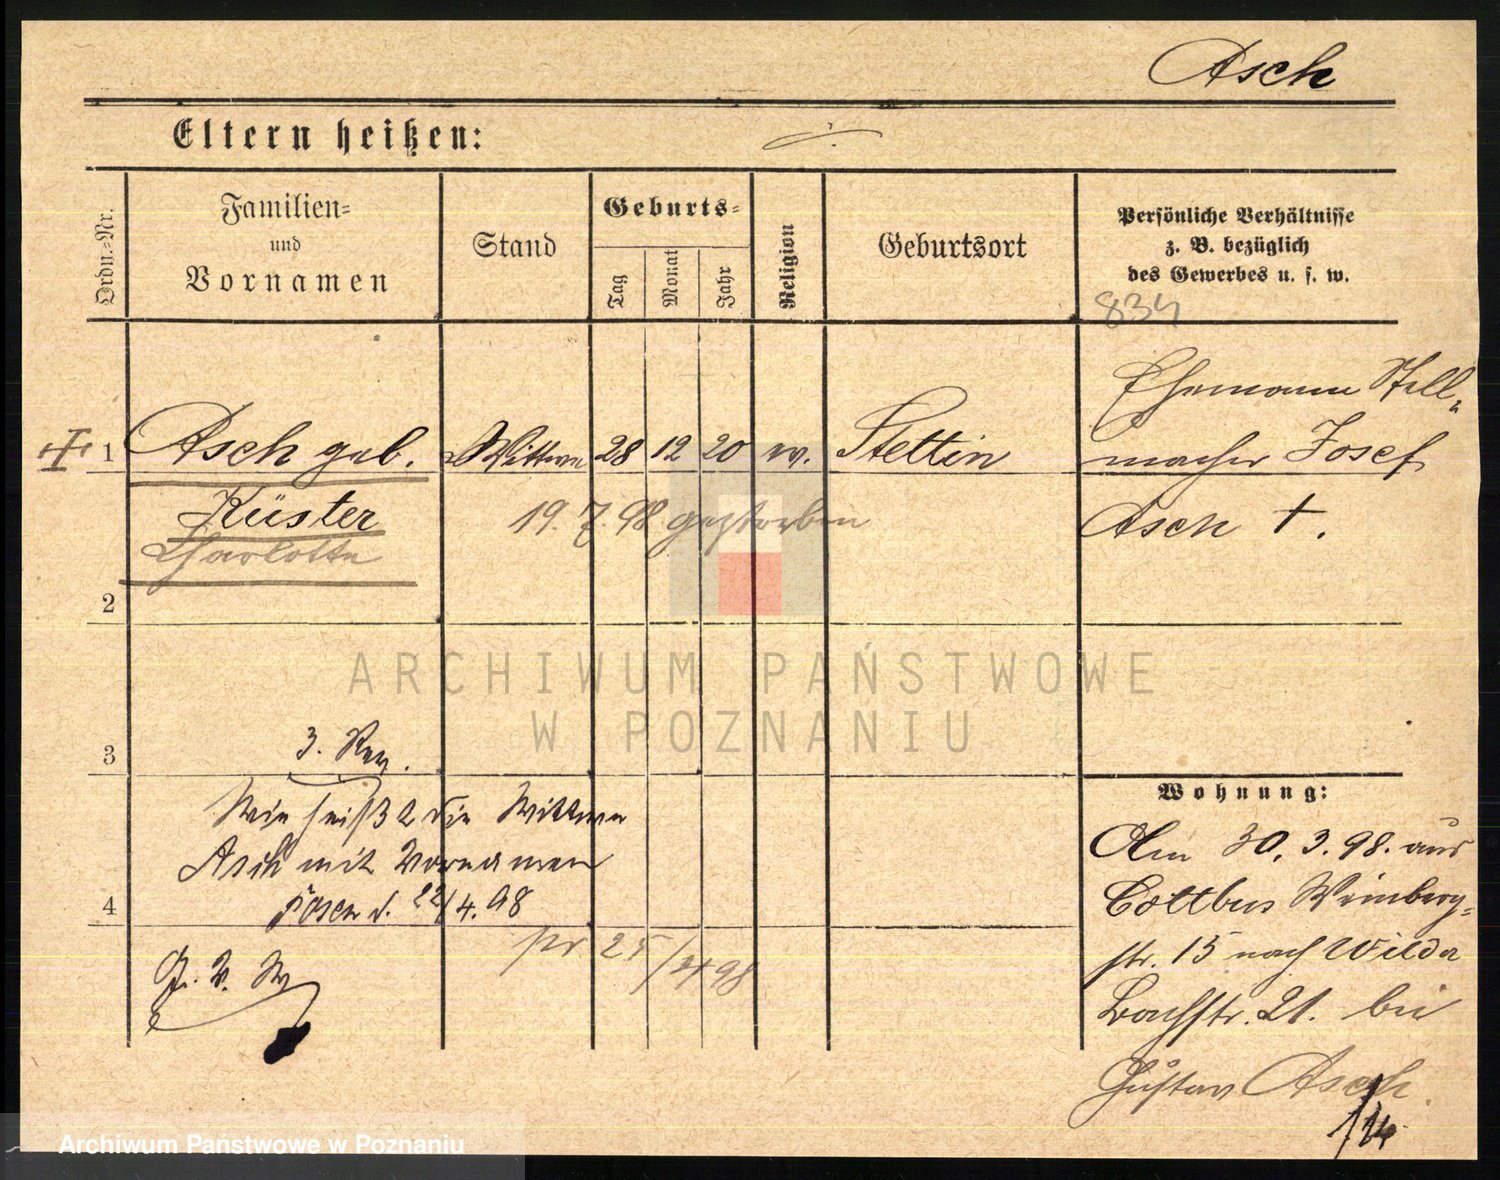 Asch
Eltern heißen:
Ordn.-Nr.
Familien-
und
Vornamen
Stand
Geburts-
Tag
Monat
Jahr
Religion
Geburtsort
Persönliche Verhältnisse
z. B. bezüglich
des Gewerbes u. s. w.
834
1
Asch geb.
Küster
Charlotte
Wittwe
28
12
20
ev.
Stettin
19. 7. 98 gestorben
Ehemann Stell-
macher Josef
Asch †.
2
3
3. Rev.
Wie heißt die Wittwe
Asch mit Vornamen
Posen d. 22/4. 98
4
pr 25/4 98
Wohnung:
Am 30. 3. 98. aus
Cottbus Weinberg-
str. 15 nach Wilda
Bachstr. 21. bei
Gustav Asch.
ARCHIWUM PAŃSTWOWE
W POZNANIU
Archiwum Państwowe w Poznaniu